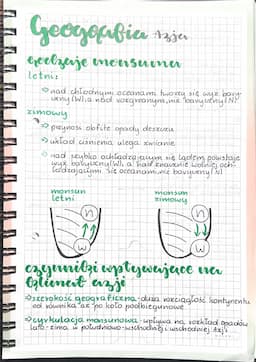 Geografia Azja
rodzaje monsunu
letni:
nad chłodnymi oceanami tworzy się wyż bary-
czny (W), a nad rozgrzanym, niż baryczny (N)
zimowy
przynosi obfite opady deszczu
układ ciśnienia ulega zmianie
nad szybko ochładzającym się lądem powstaje
wyż baryczny (W), a nad znacznie wolniej och-
ładzającymi się oceanami, niż baryczny (N)
monsun letni
monsun zimowy
N
N
W
W
czynniki wpływające na
klimat azji
szerokość geograficzna - duża rozciągłość kontynentu
od równika aż po koło podbiegunowe
cyrkulacja monsunowa - wpływa na rozkład opadów
lato-zima w południowo-wschodniej i wschodniej Azji